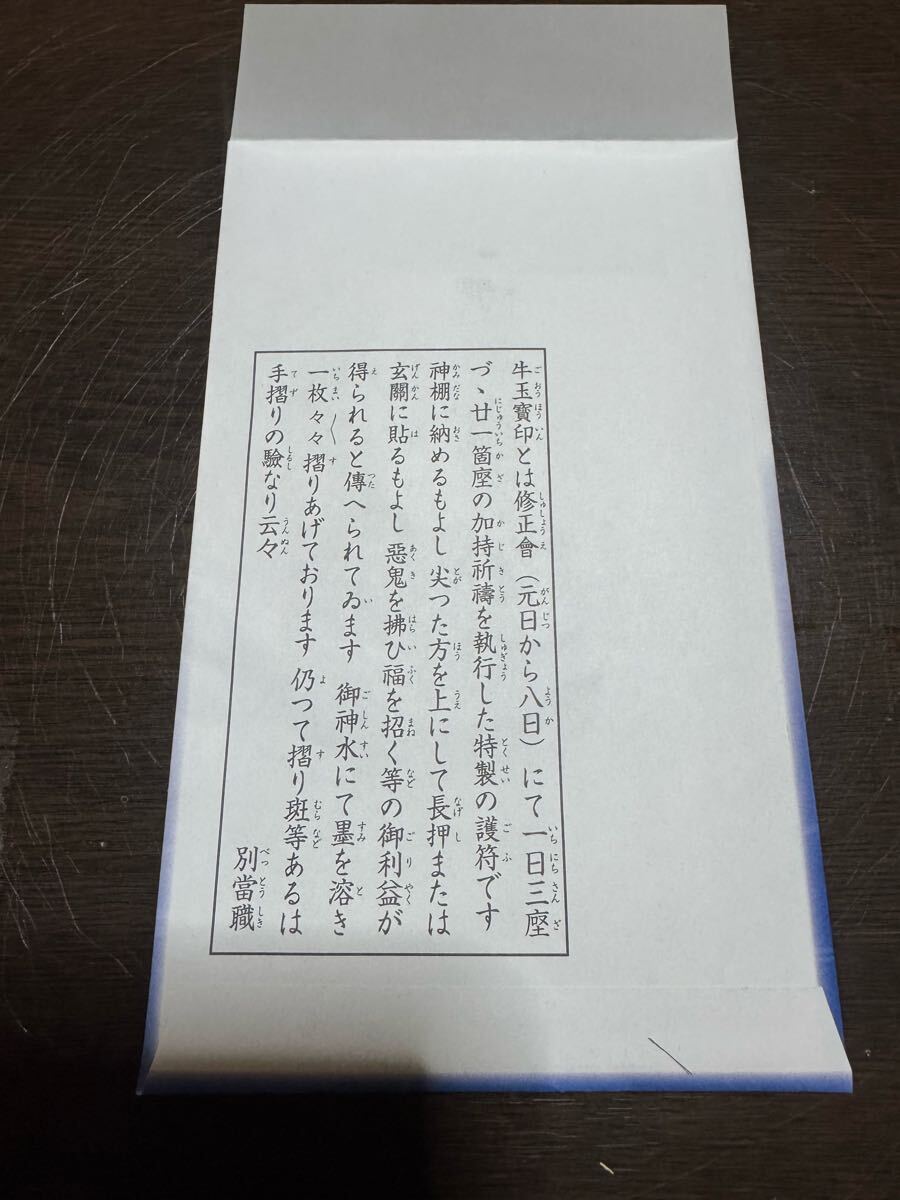 牛玉寶印とは修正會（元日から八日）にて一日三座
づゝ廿一箇座の加持祈禱を執行した特製の護符です
神棚に納めるもよし 尖つた方を上にして長押または
玄關に貼るもよし 惡鬼を拂ひ福を招く等の御利益が
得られると傳へられてゐます 御神水にて墨を溶き
一枚々々〳〵摺りあげております 仍つて摺り斑等あるは
手摺りの驗なり云々
別當職